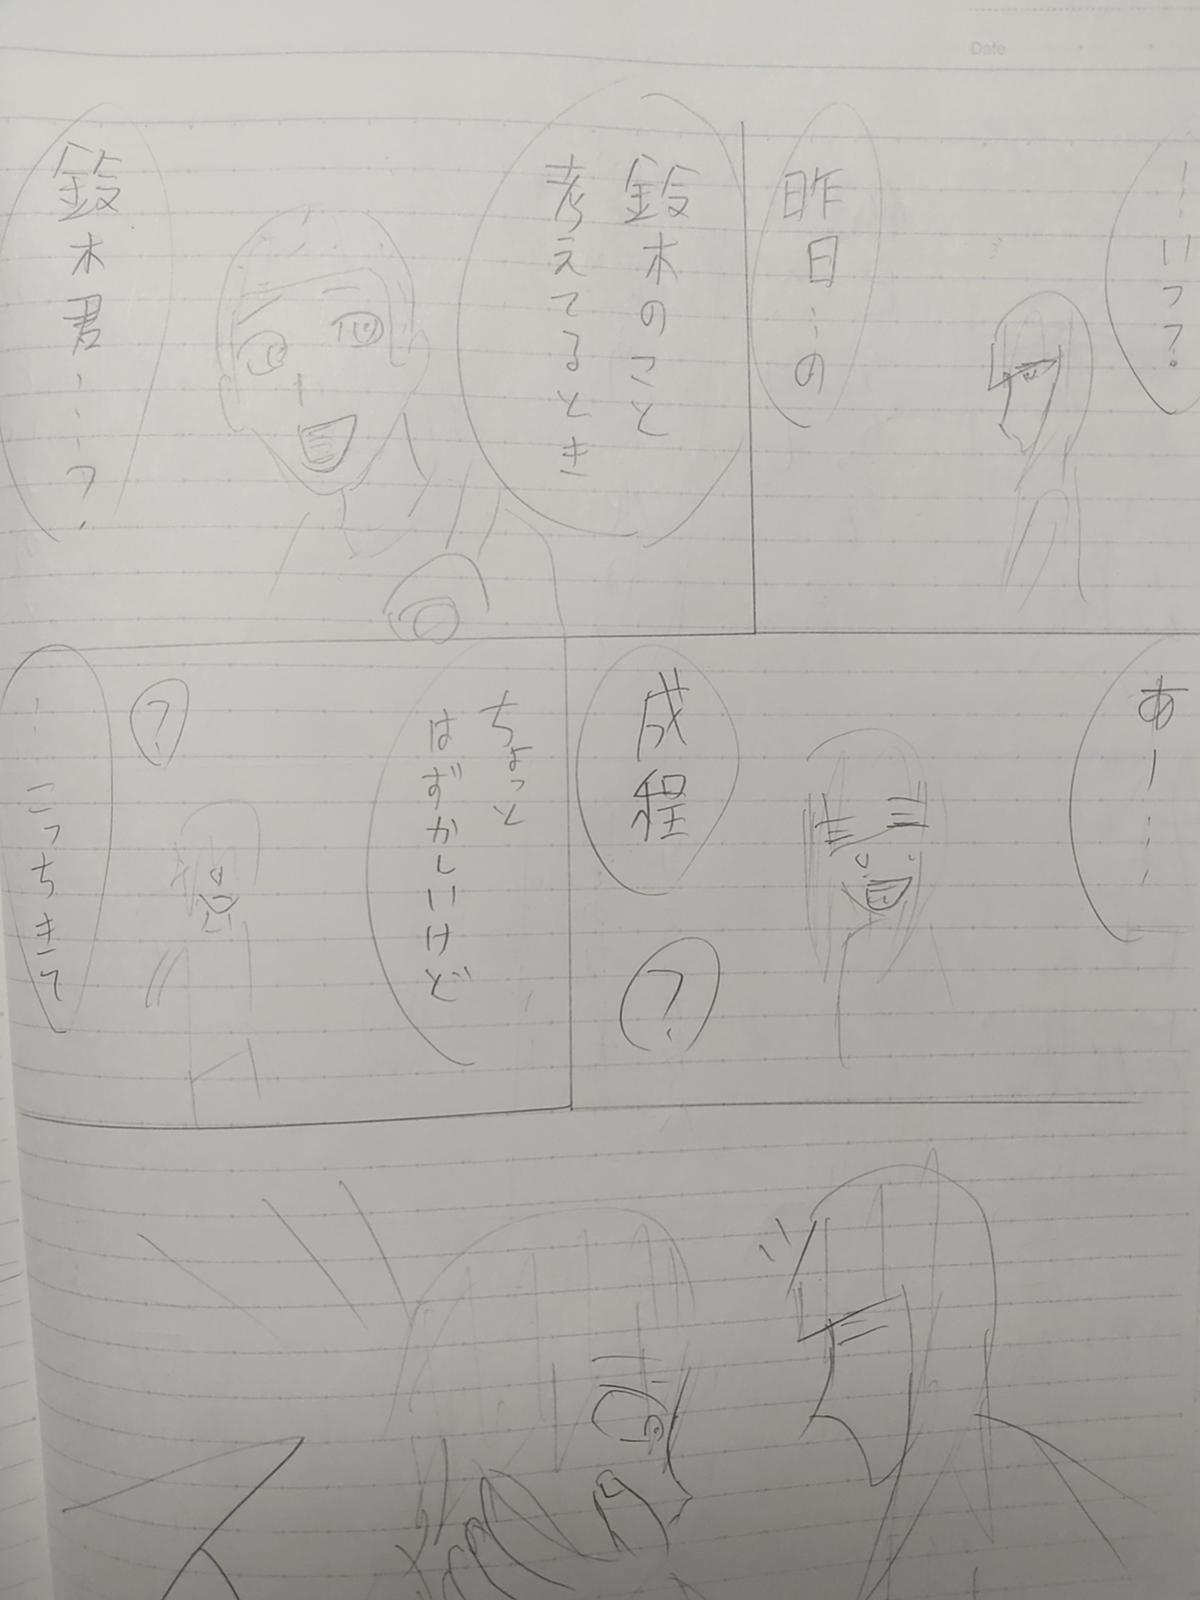 Date
…いつ?
昨日…の
鈴木のこと
考えてるとき
鈴木君……?
あー……
成程
?
ちょっと
はずかしいけど
?
…こっちきて